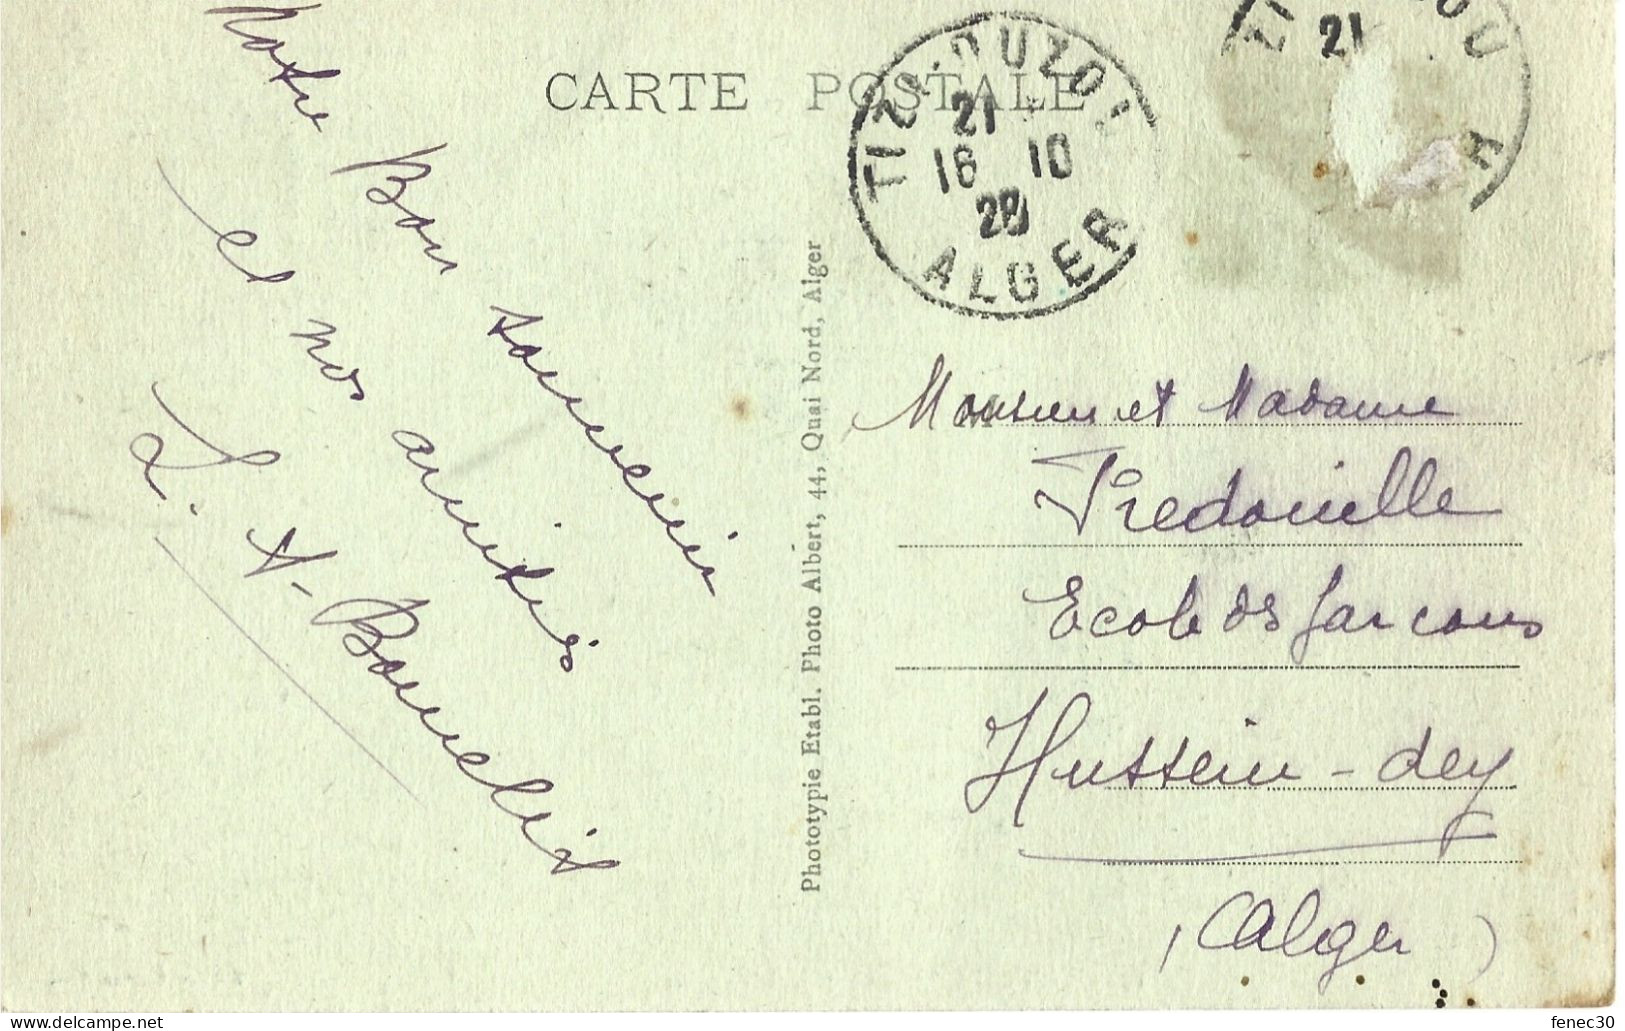 CARTE POSTALE
TIZI-OUZOU
21
16 10
ALGER
21
Notre Bon souvenir
et nos amitiés
Phototypie Etabl. Photo Albert, 44, Quai Nord, Alger
Monsieur et Madame
Fredouille
Ecole de Garcons
Hussein-dey
(Alger)
delcampe.net
fenec30